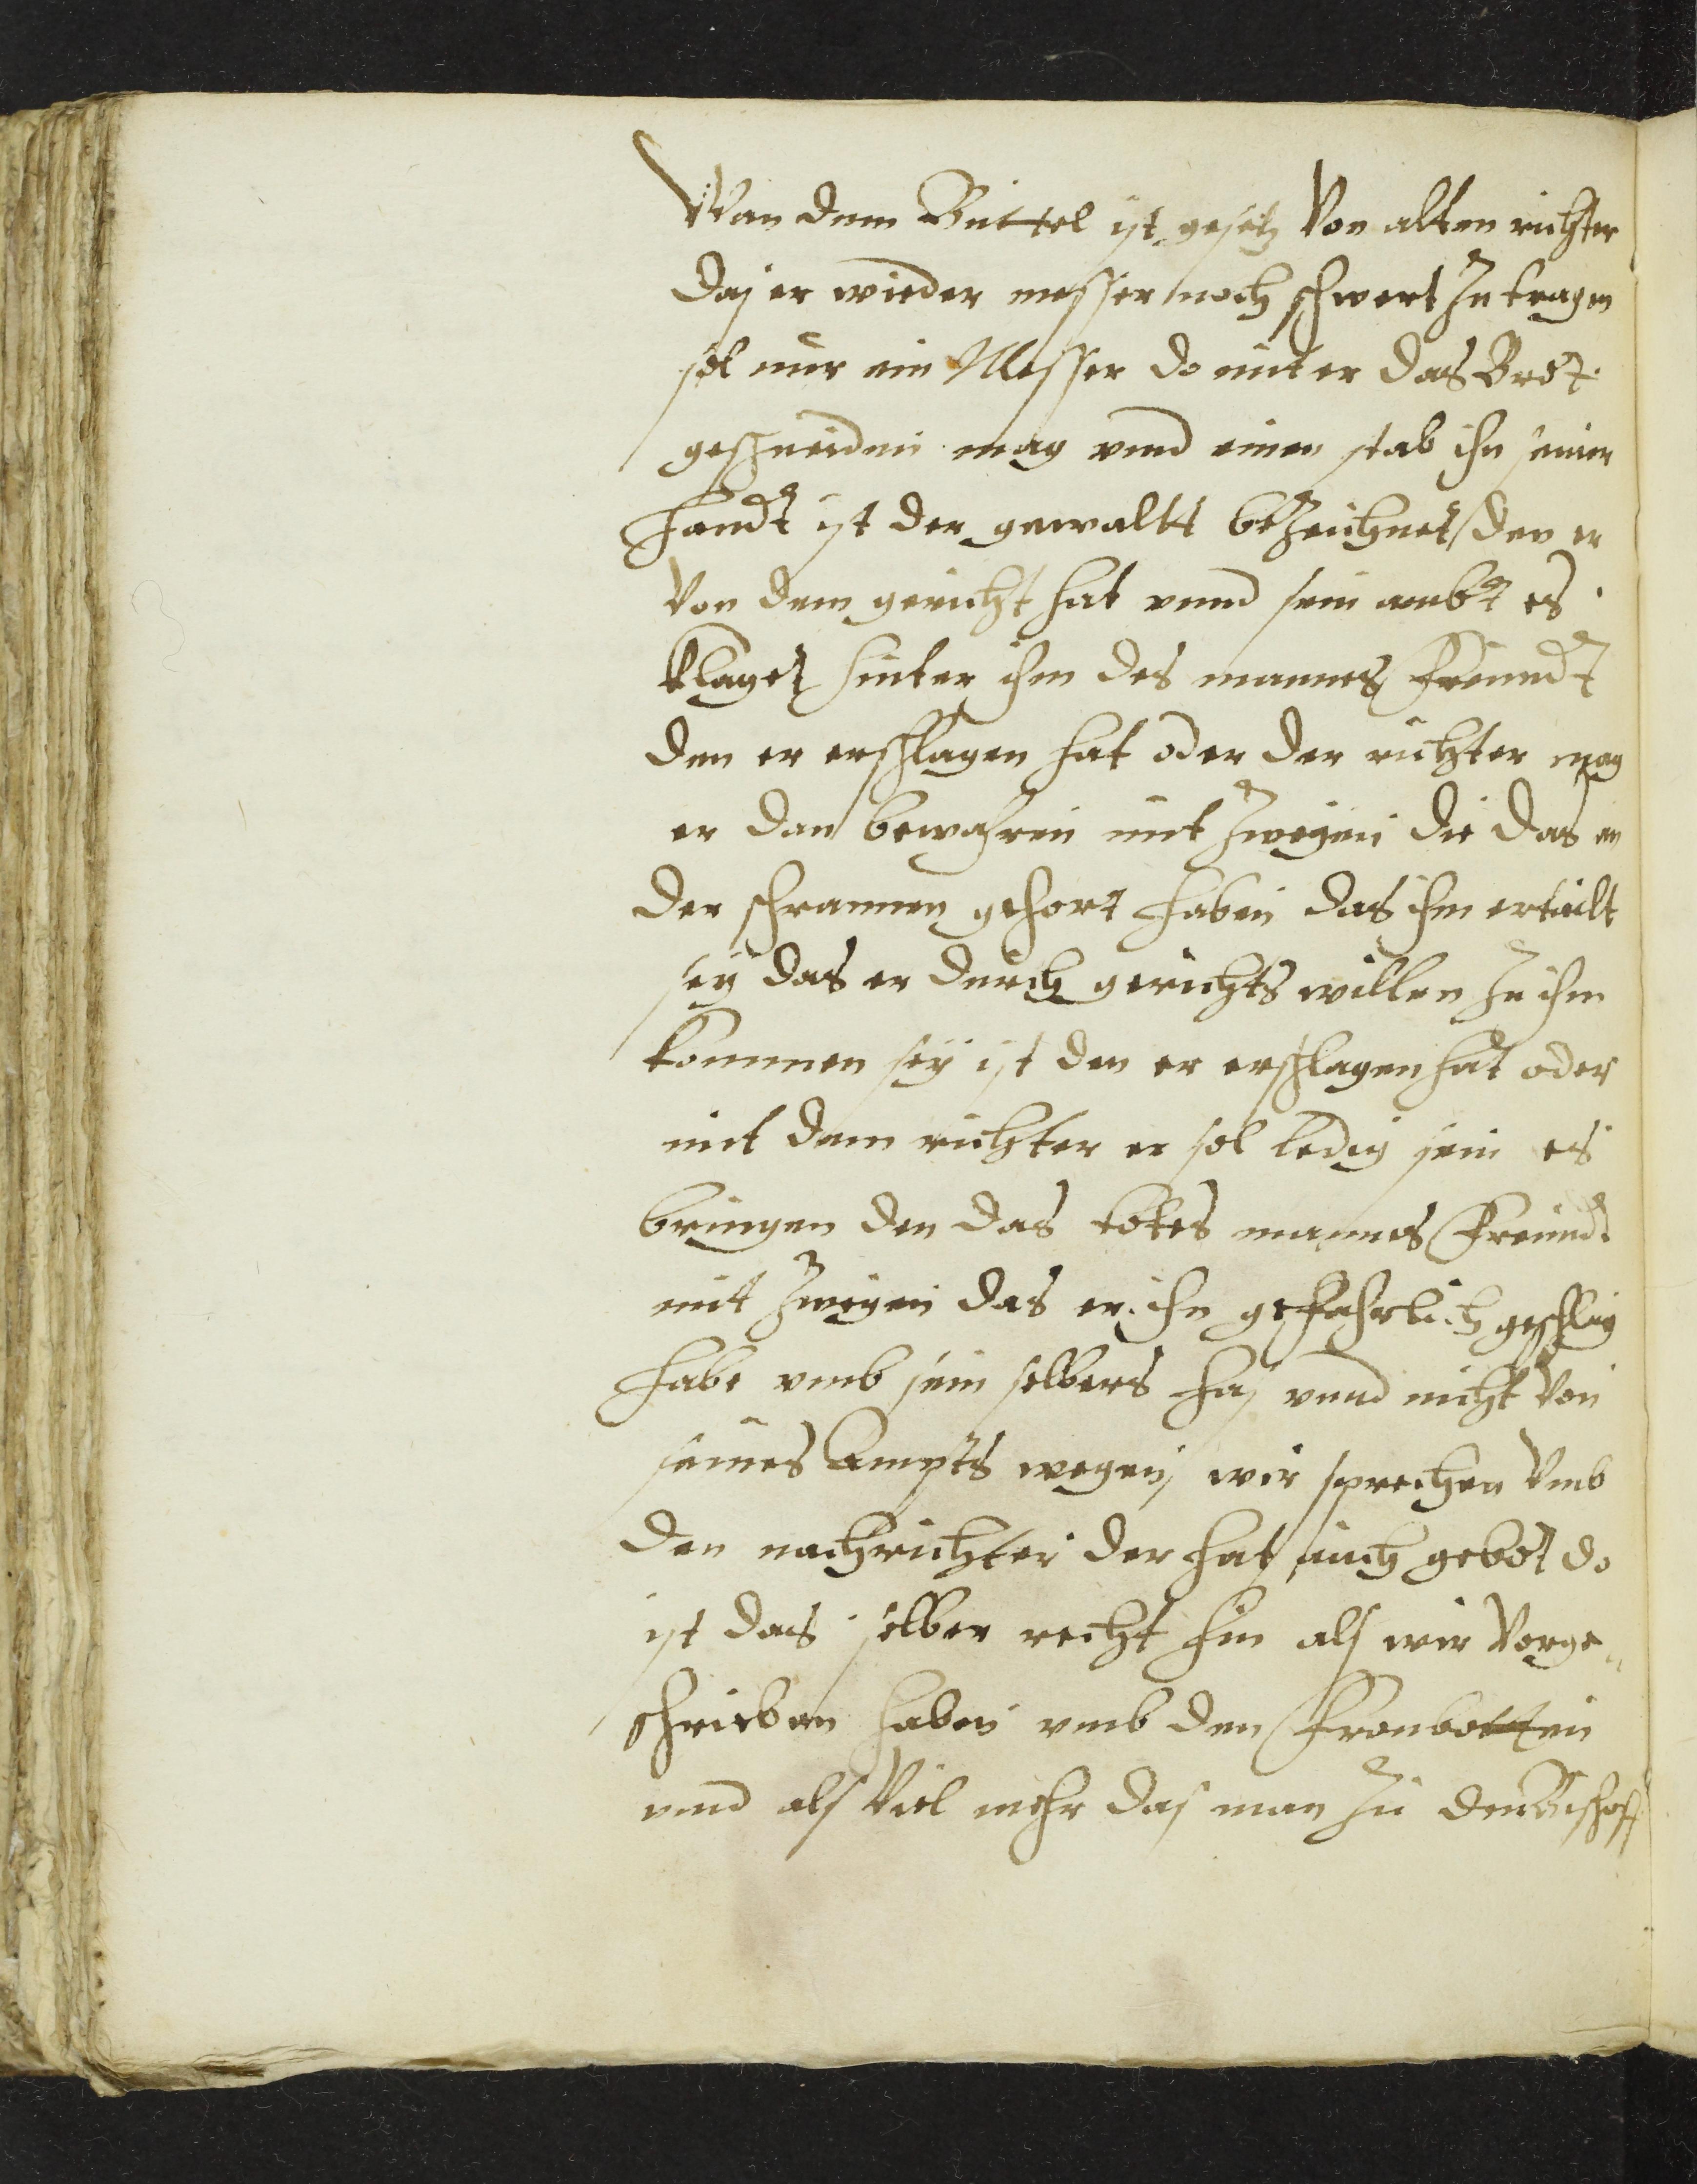 Wan dem Büttel ist gesetz Von alten richter
das er wieder messer noch schwert zu tragen
sol nur ein Messer do mit er das Brot
geschneiden mag vnnd einen stab ihn seiner
handt ist der gewaltt bezeichnet den er
Von dem gericht hat vnnd sein ambt es
klaget hinter ihm des mannes freundt
den er erschlagen hat oder der richter mag
er dan bewahren mit zweyen die das an
der schrannen gehort haben das ihm erteilt
sey das er durch gerichts willen zu ihm
kommen sey ist den er erschlagen hat oder
mit dem richter er sol ledig sein es
bringen den das totes mannes freundt
mit zweyen das er ihn gefahrlich geschlag
habe vmb sein selbers has vnnd nicht Von
seines Ampts wegen wir sprechen Vmb
den nachrichter der hat auch gebot do
ist das selber recht hin als wir Vorge„
schrieben haben vmb den fronbotten
vnnd als Viel mehr das man zu den Bischoff